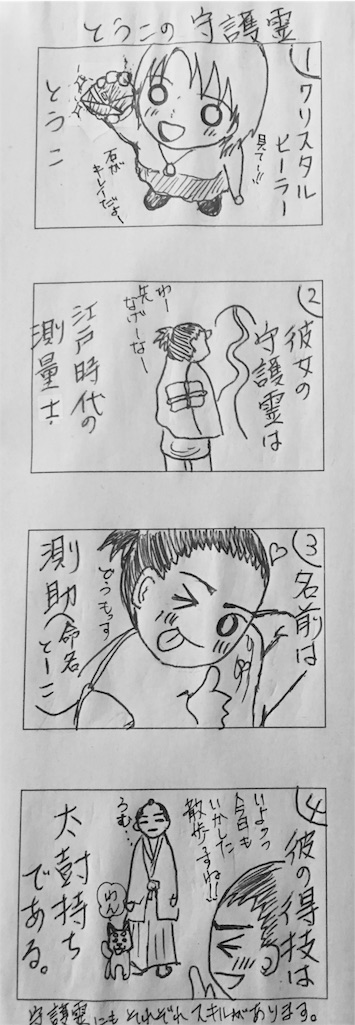 とうこの守護霊
①クリスタル
ヒーラー
見て〜!!
石が
キレイだよー
とうこ
②彼女の
守護霊は
わー
先
なげーなー
江戸時代の
測量士.
③名前は
どうもっす
測助(命名
とーこ)
④彼の得技は
いよっっ
今日も
いかした
散歩っすね!!
うむ…
わん
太鼓持ち
である。
守護霊にもそれぞれスキルがあります。